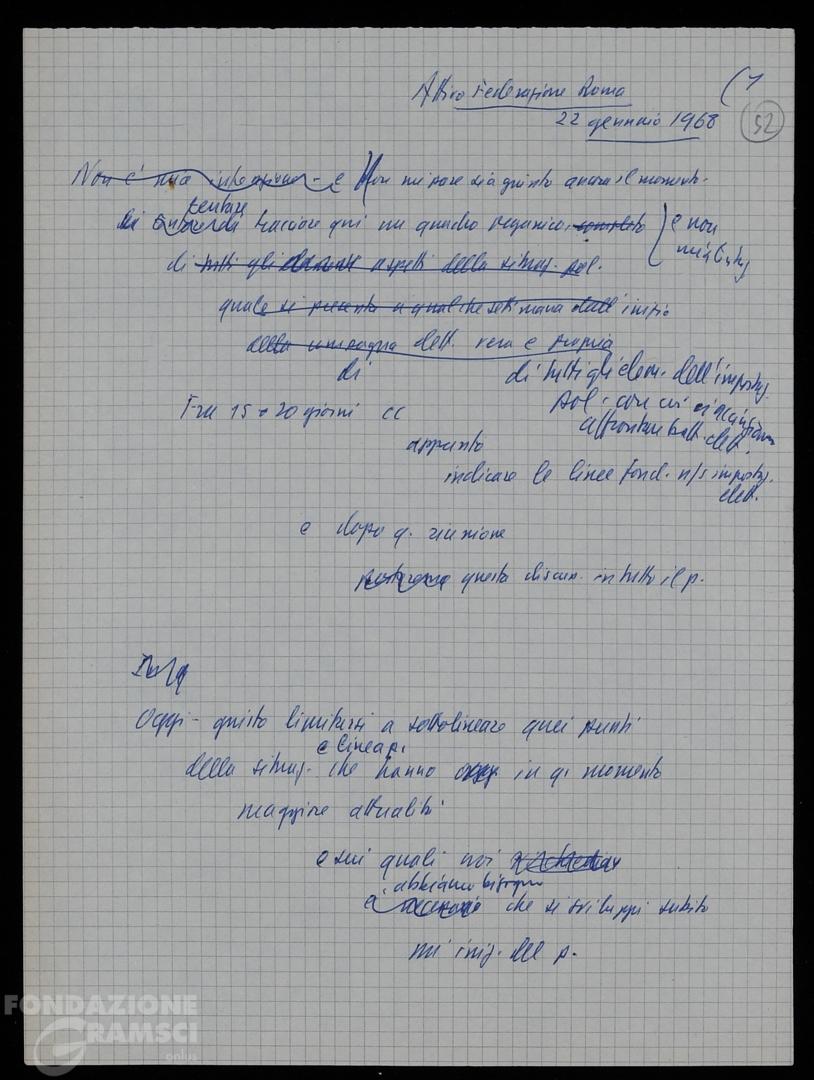 Attivo Federazione Roma
(1
22 gennaio 1968
52
Non è mia intenzione - e Non mi pare sia giunto ancora il momento
tentare
di tracciare qui un quadro organico, completo
e non
di tutti gli aspetti della situaz. pol.
quale si presenta a qualche settimana dall'inizio
della campagna elett. vera e propria
di
di tutti gli elem. dell'impostaz.
pol. con cui ci
affrontare batt. elett.
Fra 15 o 20 giorni CC
appunto
indicare le linee fond. n/s impostaz.
elett.
e dopo q. riunione
porteremo questa discuss. in tutto il p.
Oggi - giusto limitarsi a sottolineare quei punti
e linea p.
della situaz. che hanno oggi in q. momento
maggiore attualità
e sui quali noi
abbiamo bisogno
è necessario che si sviluppi subito
un' iniz. del p.
FONDAZIONE
GRAMSCI
onlus